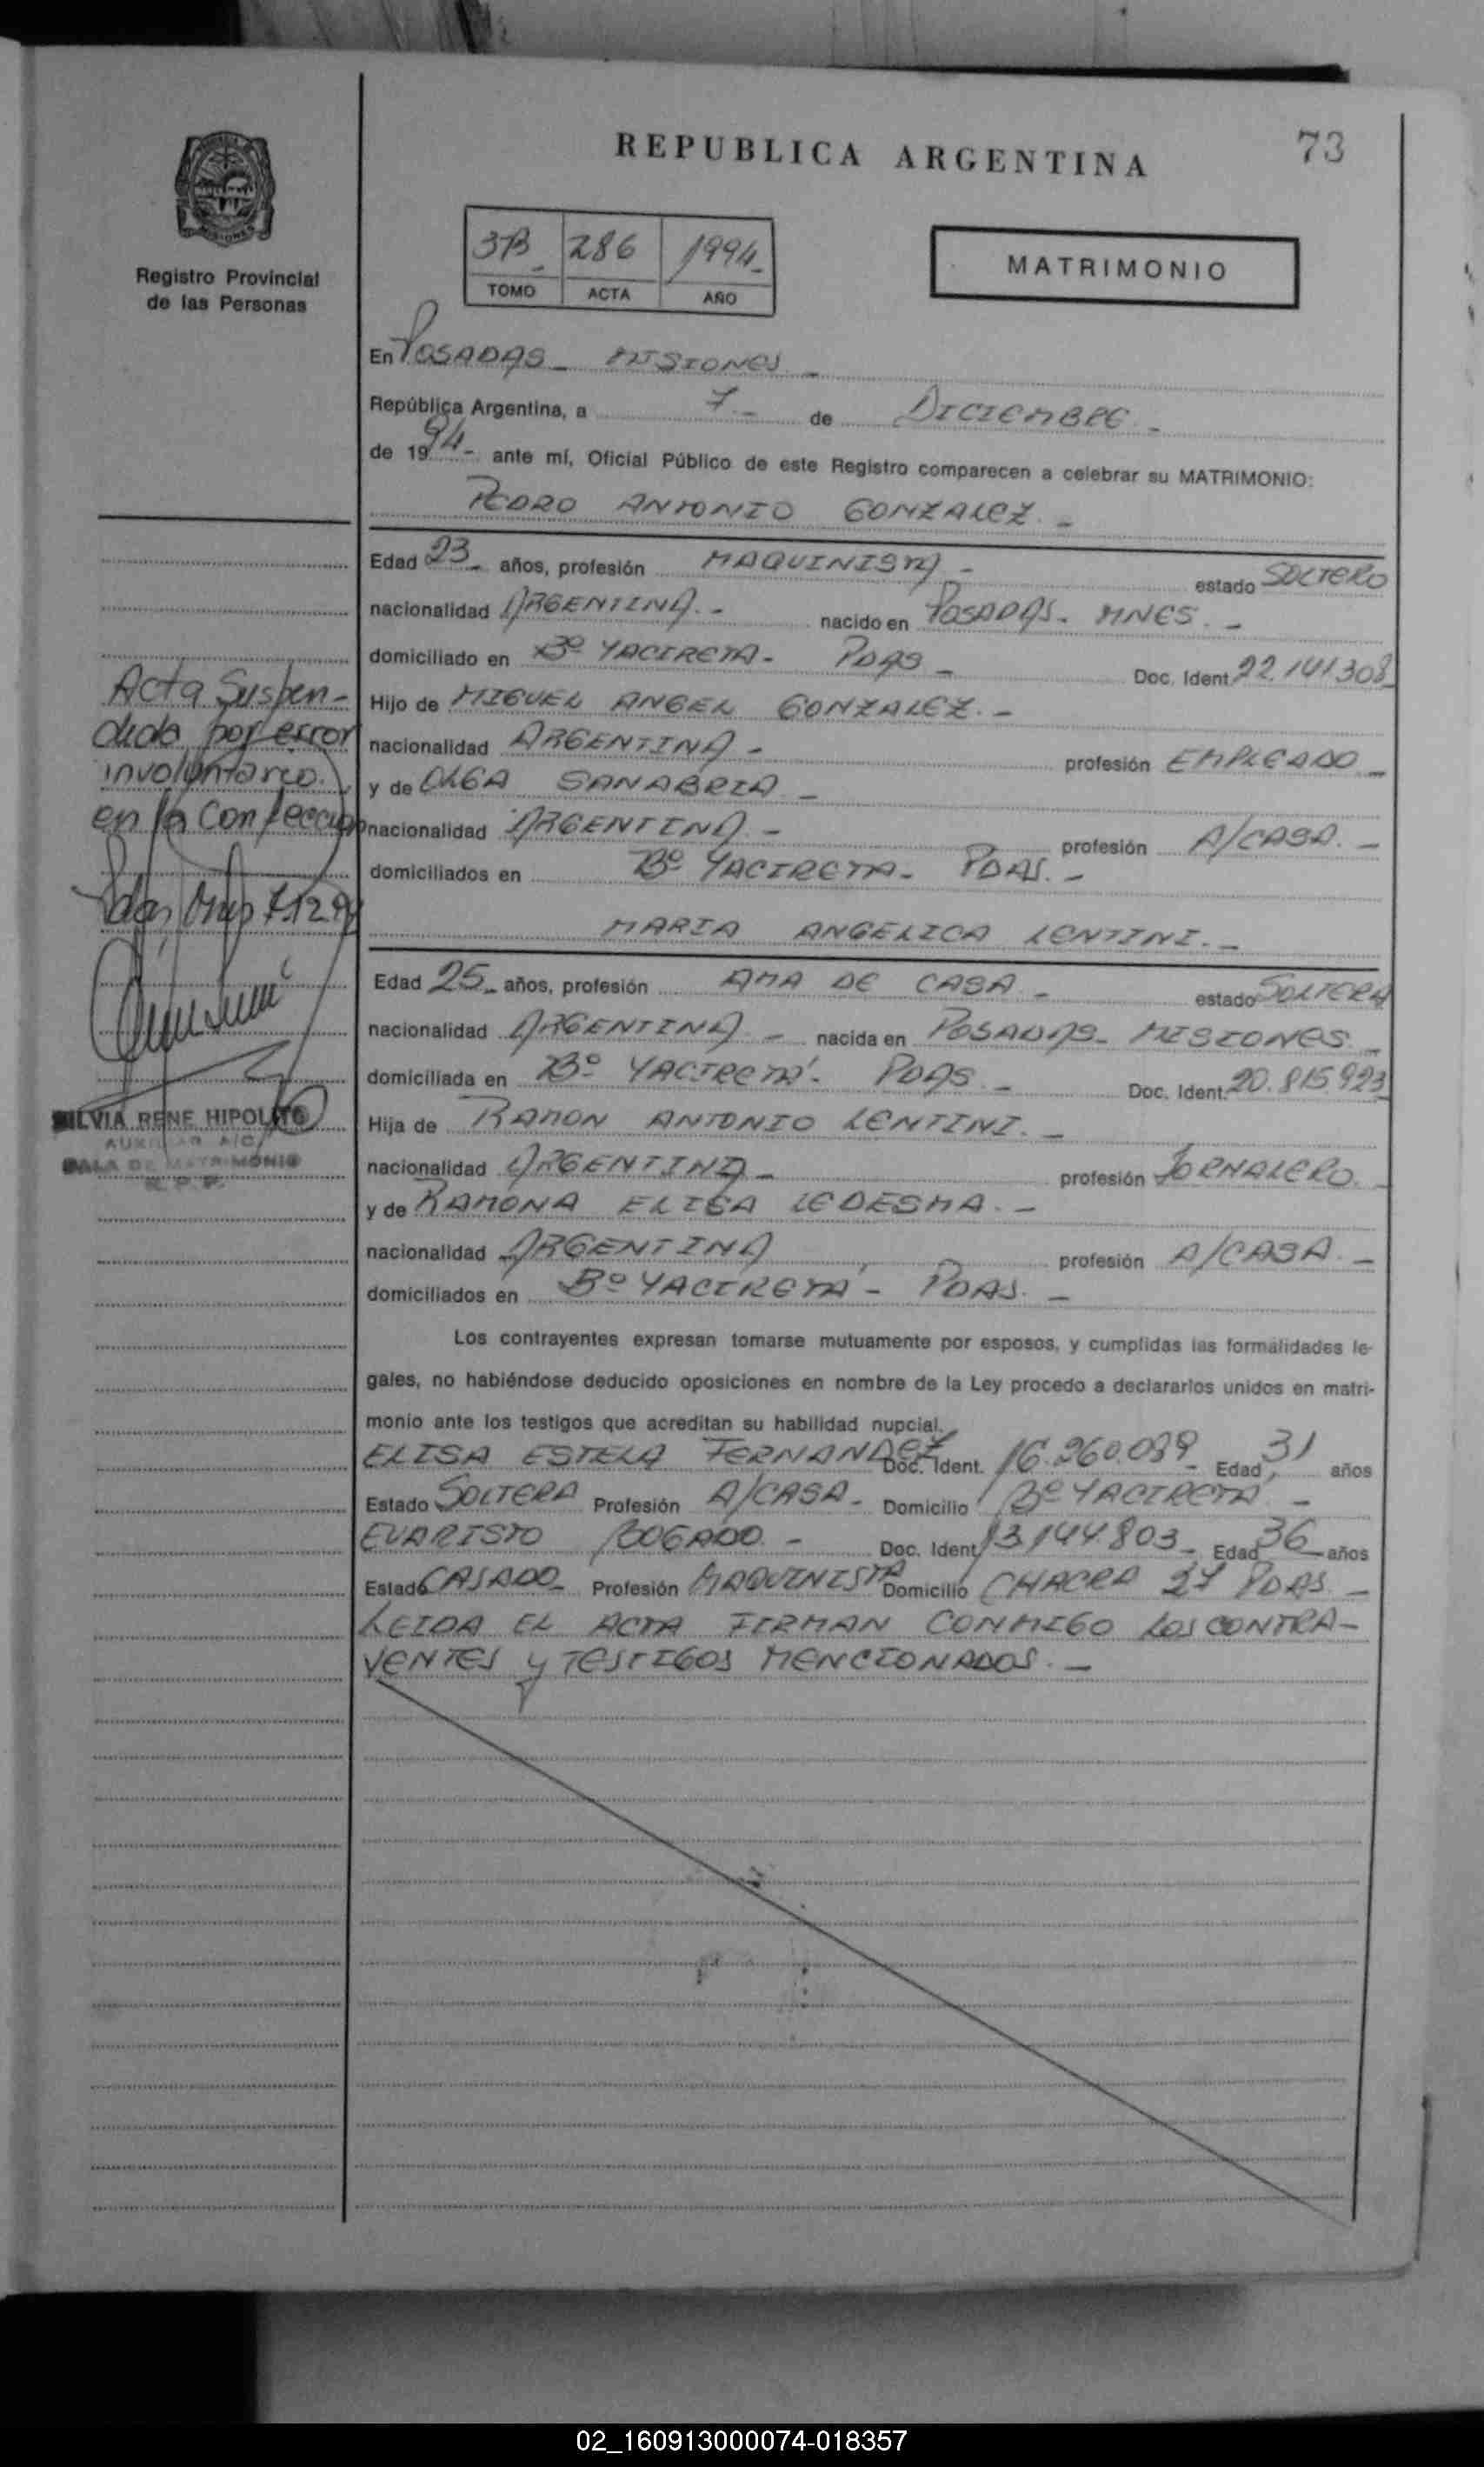 REPUBLICA ARGENTINA
73
Registro Provincial
de las Personas
3B_ 286 1994_
TOMO ACTA AÑO
MATRIMONIO
En POSADAS_ MISIONES._
República Argentina, a 7_ de DICIEMBRE._
de 1994- ante mí, Oficial Público de este Registro comparecen a celebrar su MATRIMONIO:
PEDRO ANTONIO GONZALEZ._
Edad 23_ años, profesión MAQUINISTA_ estado SOLTERO
nacionalidad ARGENTINA._ nacido en POSADAS_ MNES._
domiciliado en Bº YACIRETA_ PDAS_ Doc. Ident. 22.141.308_
Hijo de MIGUEL ANGEL GONZALEZ._
nacionalidad ARGENTINA_ profesión EMPLEADO_
y de OLGA SANABRIA_
nacionalidad ARGENTINA_ profesión A/CASA._
domiciliados en Bº YACIRETA_ PDAS._
MARIA ANGELICA LENTINI._
Edad 25_ años, profesión AMA DE CASA_ estado SOLTERA
nacionalidad ARGENTINA_ nacida en POSADAS_ MISIONES_
domiciliada en Bº YACIRETÁ_ PDAS_ Doc. Ident. 20.815.923_
Hija de RAMON ANTONIO LENTINI._
nacionalidad ARGENTINA_ profesión JORNALERO._
y de RAMONA ELISA LEDESMA._
nacionalidad ARGENTINA profesión A/CASA._
domiciliados en Bº YACIRETÁ_ PDAS._
Los contrayentes expresan tomarse mutuamente por esposos, y cumplidas las formalidades le-
gales, no habiéndose deducido oposiciones en nombre de la Ley procedo a declararlos unidos en matri-
monio ante los testigos que acreditan su habilidad nupcial.
ELISA ESTELA FERNANDEZ Doc. Ident. 16.260.089_ Edad 31 años
Estado SOLTERA Profesión A/CASA_ Domicilio Bº YACIRETÁ_
EVARISTO BOGADO_ Doc. Ident. 13.144.803_ Edad 36_ años
Estado CASADO_ Profesión MAQUINISTA Domicilio CHACRA 27 PDAS_
LEIDA EL ACTA FIRMAN CONMIGO LOS CONTRA-
YENTES y TESTIGOS MENCIONADOS._
Acta Suspen-
dida por error
involuntario
en la Confección
Pdas, Mnes 7.12.94
SILVIA RENE HIPOLITO
AUXILIAR A/C
SALA DE MATRIMONIO
R. P. P.
02_160913000074-018357